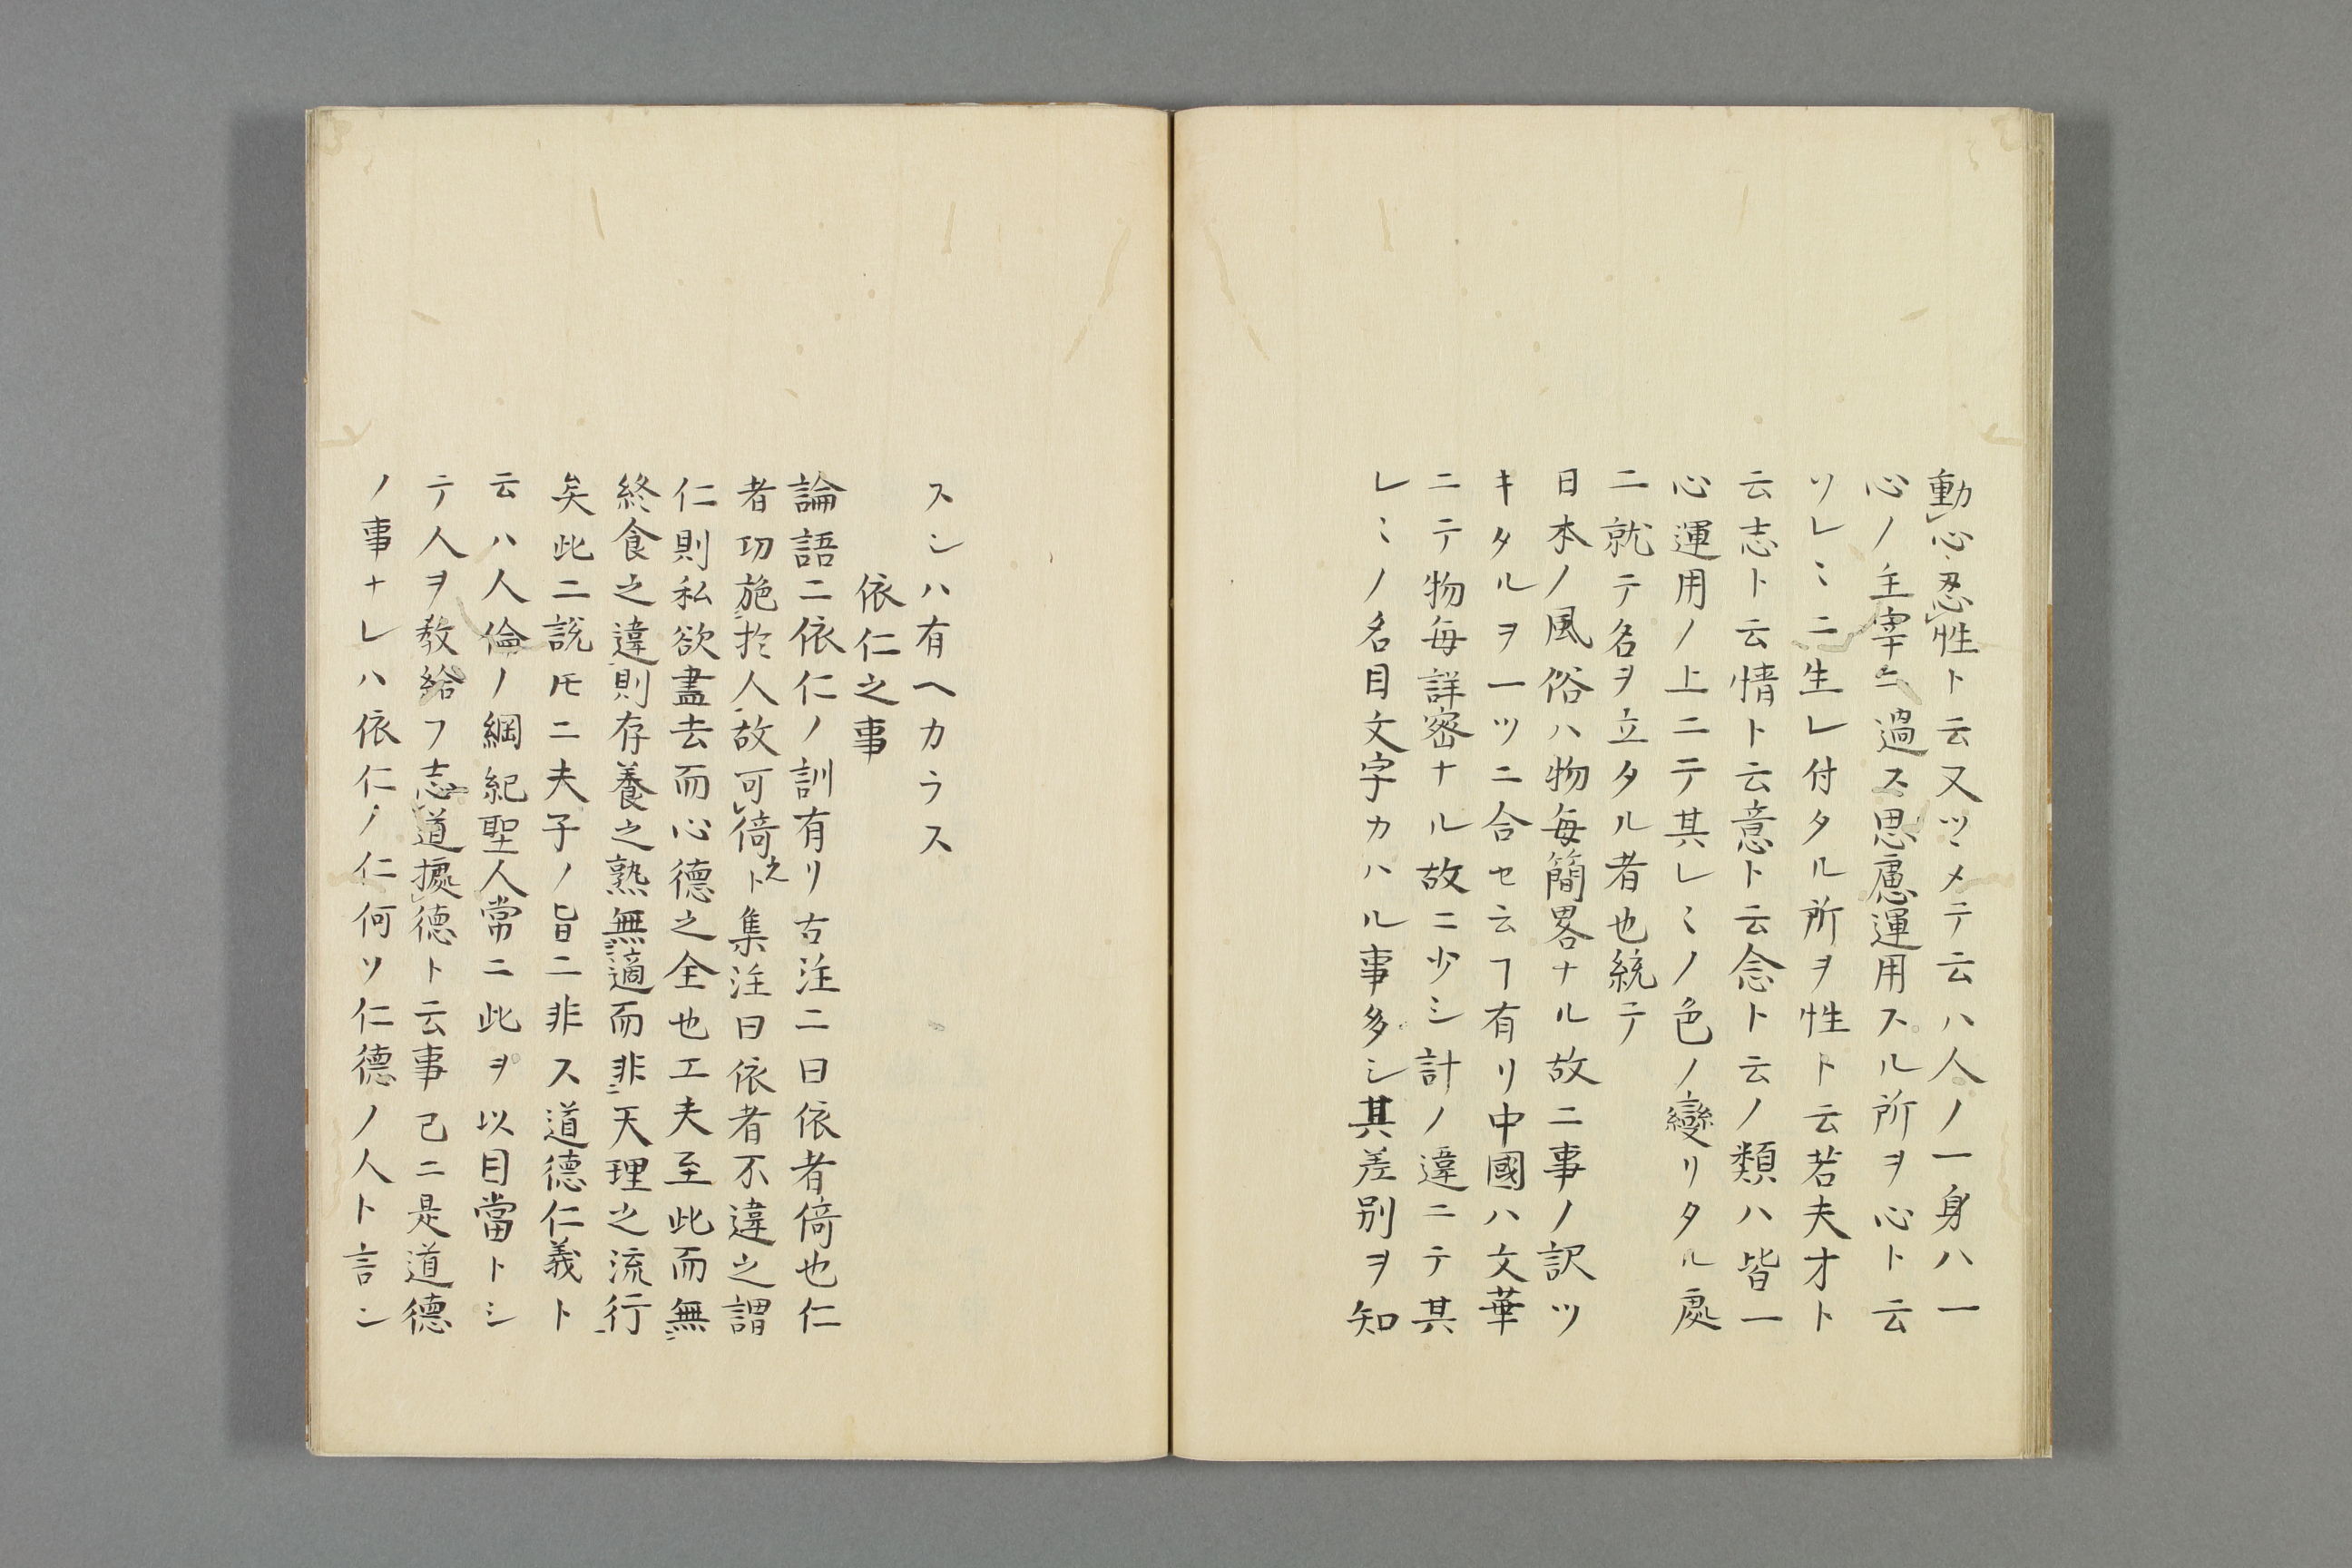 動心忍性ト云又ツヽメテ云ハ人ノ一身ハ一
心ノ主宰ニ過ス思慮運用スル所ヲ心ト云
ソレ〻ニ生レ付タル所ヲ性ト云若夫才ト
云志ト云情ト云意ト云念ト云ノ類ハ皆一
心運用ノ上ニテ其レ〻ノ色ノ變リタル處
二就テ名ヲ立タル者也統テ
日本ノ風俗ハ物毎簡畧ナル故ニ事ノ訳ツ
キタルヲ一ツニ合セ云ヿ有リ中國ハ文華
ニテ物毎詳密ナル故ニ少シ計ノ違ニテ其
レ〻ノ名目文字カハル事多シ其差別ヲ知
スンハ有ヘカラス
依仁之事
論語ニ依仁ノ訓有リ古注ニ曰依者倚也仁
者功施於人故可倚之ト集注曰依者不違之謂
仁則私欲盡去而心德之全也工夫至此而無
終食之違則存養之熟無適而非天理之流行
矣此二説𪜈ニ夫子ノ旨ニ非ス道德仁義ト
云ハ人倫ノ綱紀聖人常ニ此ヲ以目當トシ
テ人ヲ教給フ志道據德ト云事已ニ是道德
ノ事ナレハ依仁ノ仁何ソ仁德ノ人ト言ン